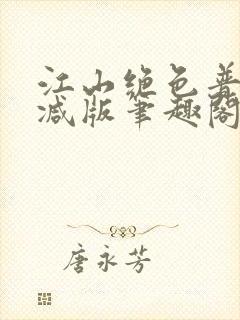 江山绝色普
减版笔趣阁
唐永芳